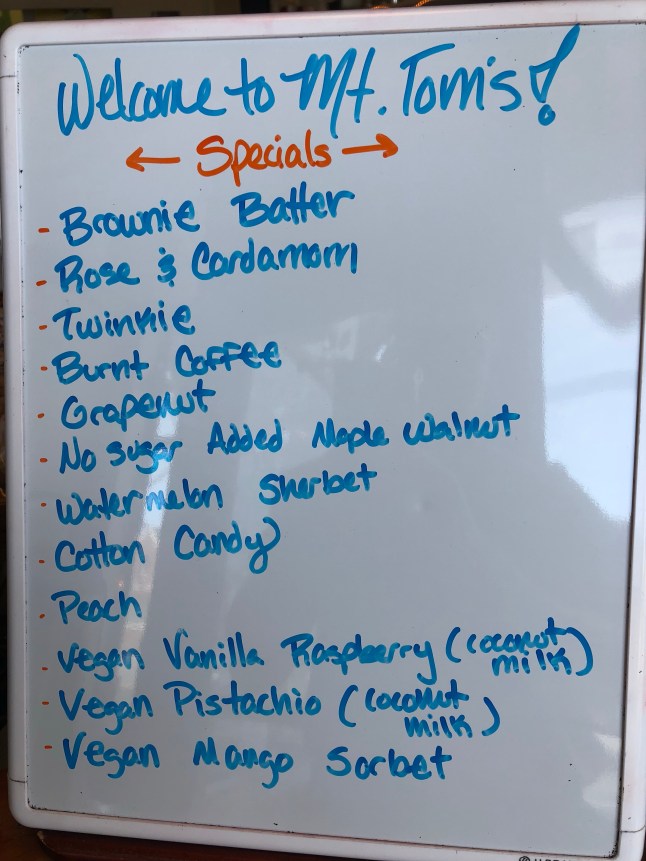 Welcome to Mt. Tom's!
← Specials →
- Brownie Batter
- Rose & Cardamom
- Twinkie
- Burnt Coffee
- Grapenut
- No sugar Added Maple Walnut
- Watermelon Sherbet
- Cotton Candy
- Peach
- Vegan Vanilla Raspberry (coconut
milk)
- Vegan Pistachio (coconut
milk)
- Vegan Mango Sorbet